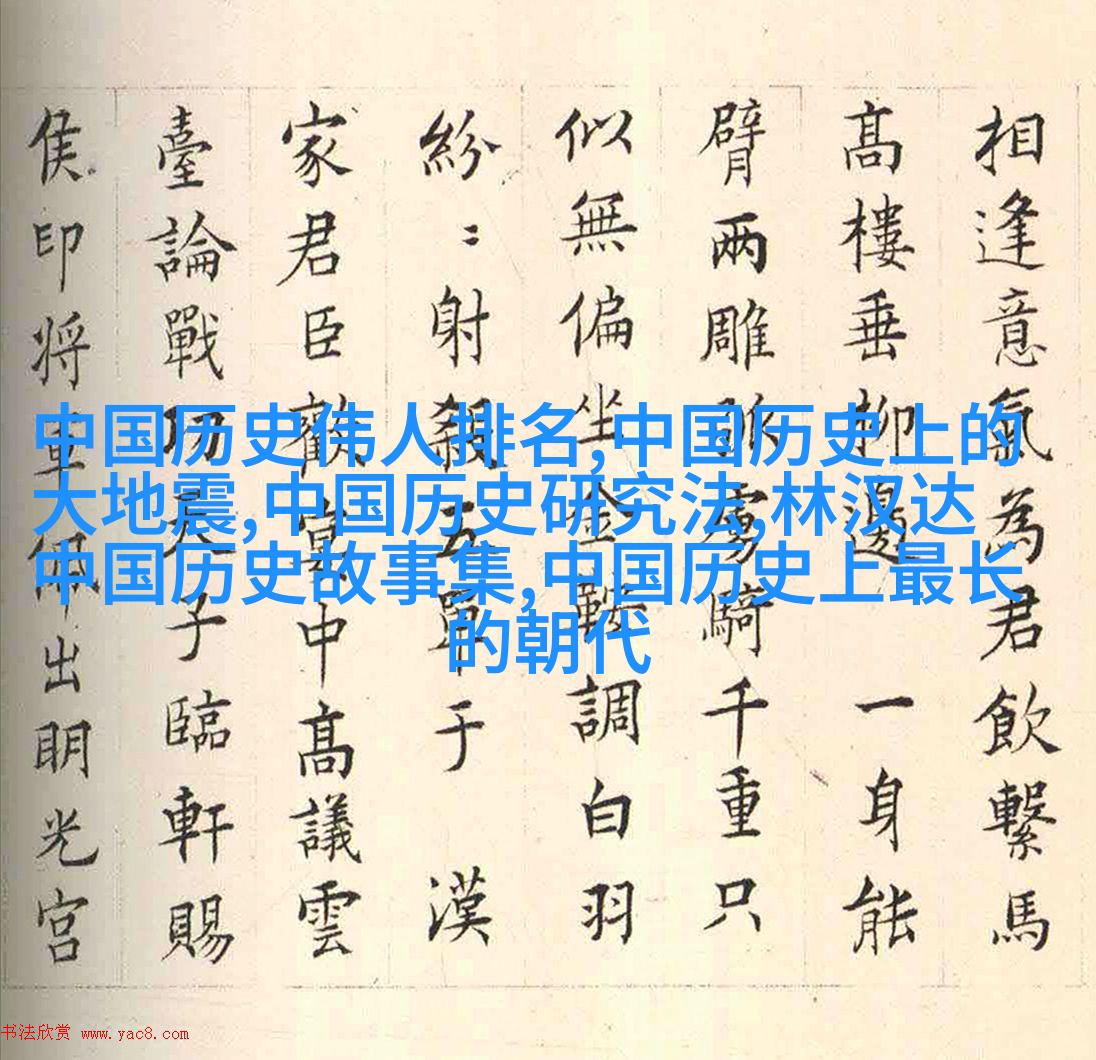 相逢意氣為君飲繫馬
髙樓垂柳邊 一身能
臂兩雕弧虜騎千重只
似無偏坐金鞍調白羽
紛〻射殺五單于 漢
家君臣歡宴中髙議雲
臺論戰功天子臨軒賜
侯印将軍佩出明光宮
中国历史伟人排名,中国历史上的
大地震,中国历史研究法,林汉达
中国历史故事集,中国历史上最长
的朝代
书法欣赏 www.yac8.com